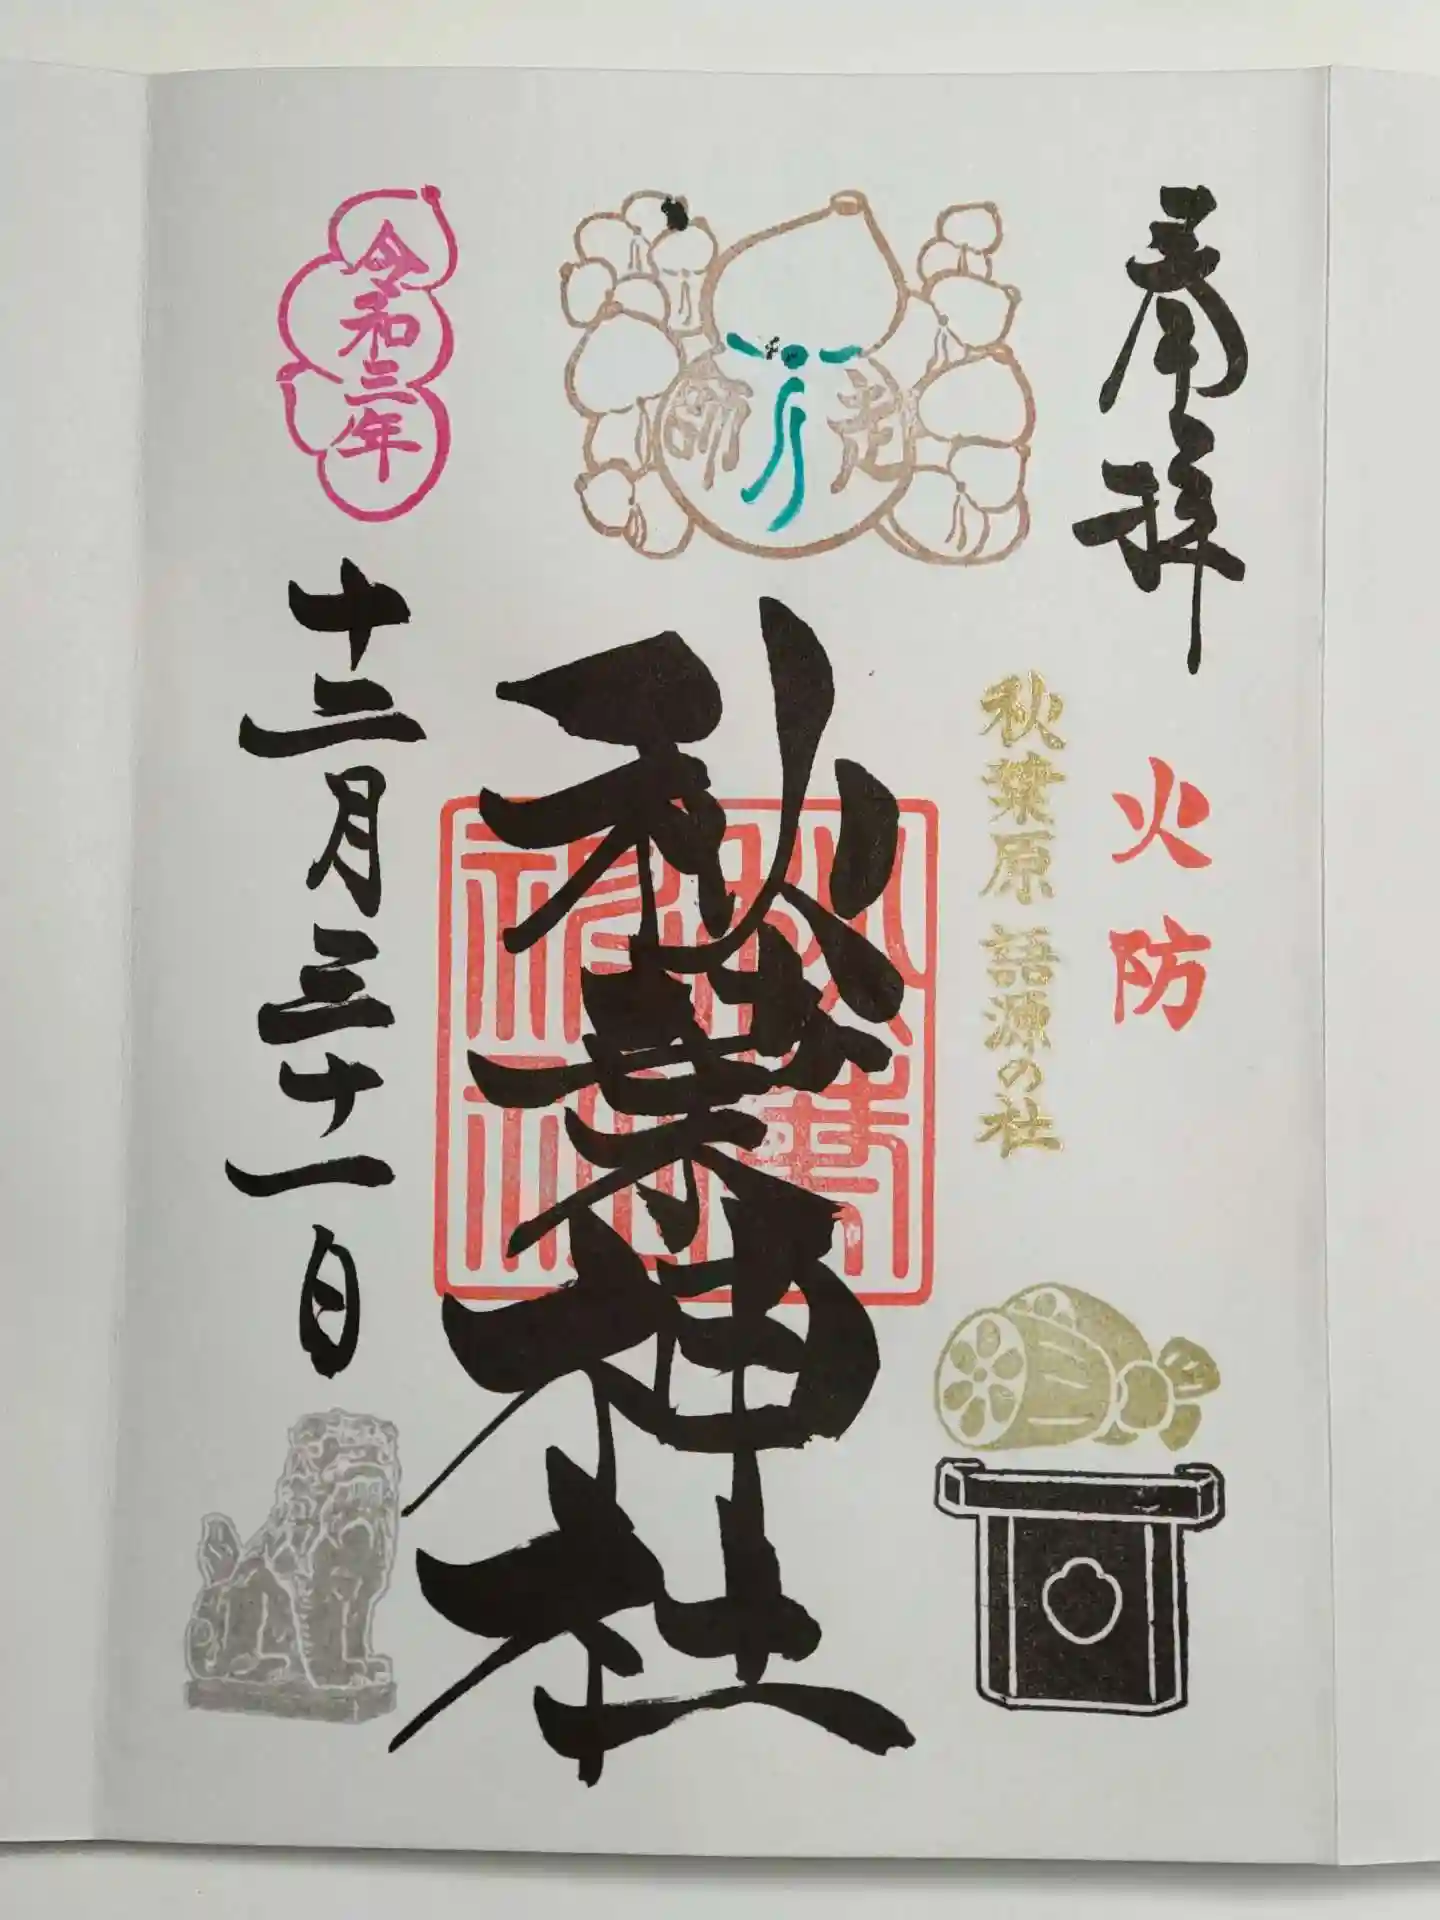 奉拝
火防
秋葉原 語源の社
走
師
秋葉神社
秋葉
神社
令和三年
十二月三十一日